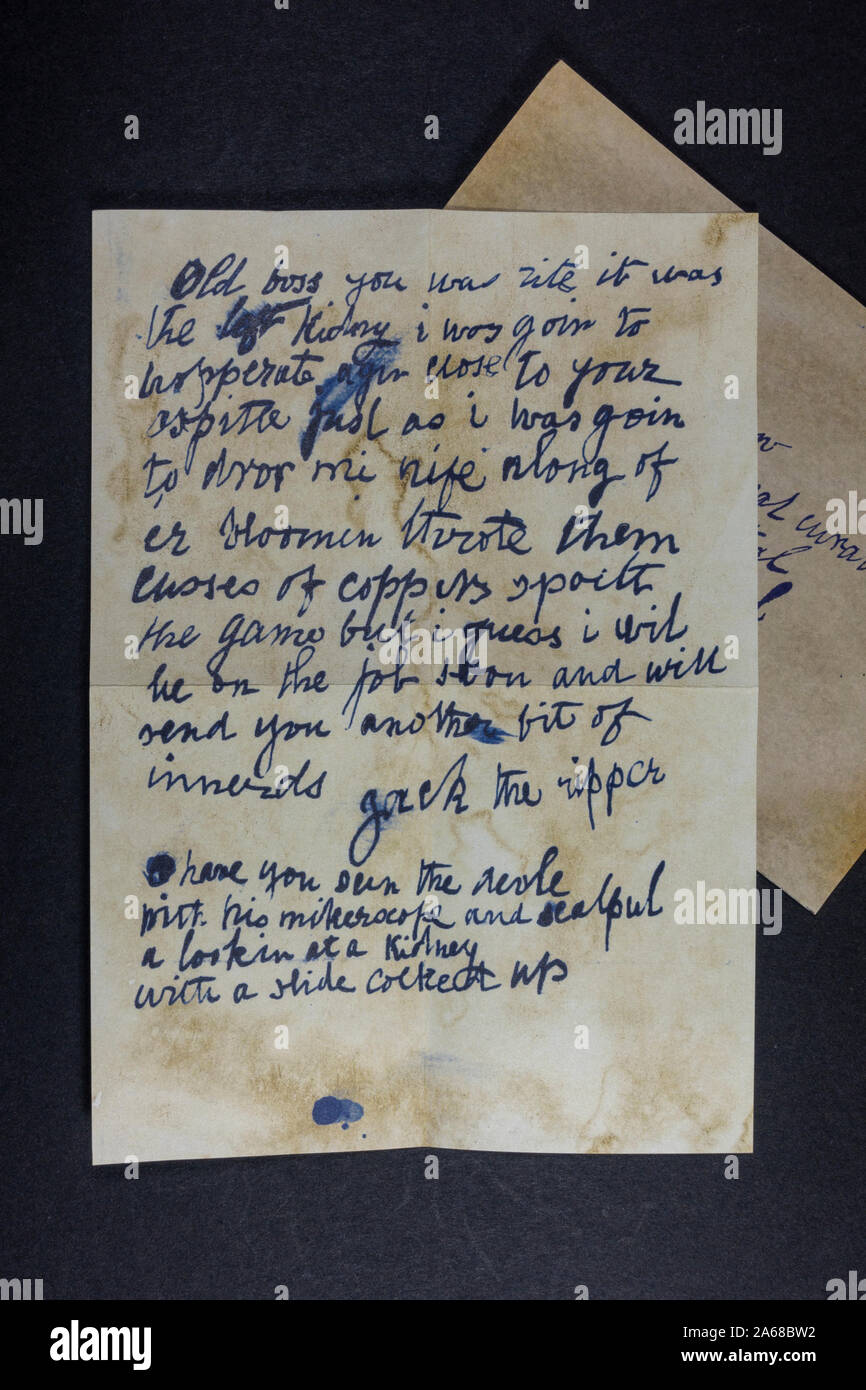 Old boss you was rite it was
the left kidny i was goin to
hopperate agin close to your
ospitle just as i was goin
to drop mi nife along of
er bloomin throte them
cusses of coppers spoilt
the game but i guess i wil
be on the job soon and will
send you another bit of
innerds Jack the ripper
O have you seen the devle
with his mikerscope and scalpul
a lookin at a Kidney
with a slide cocked up
alamy
Image ID: 2A68BW2
www.alamy.com